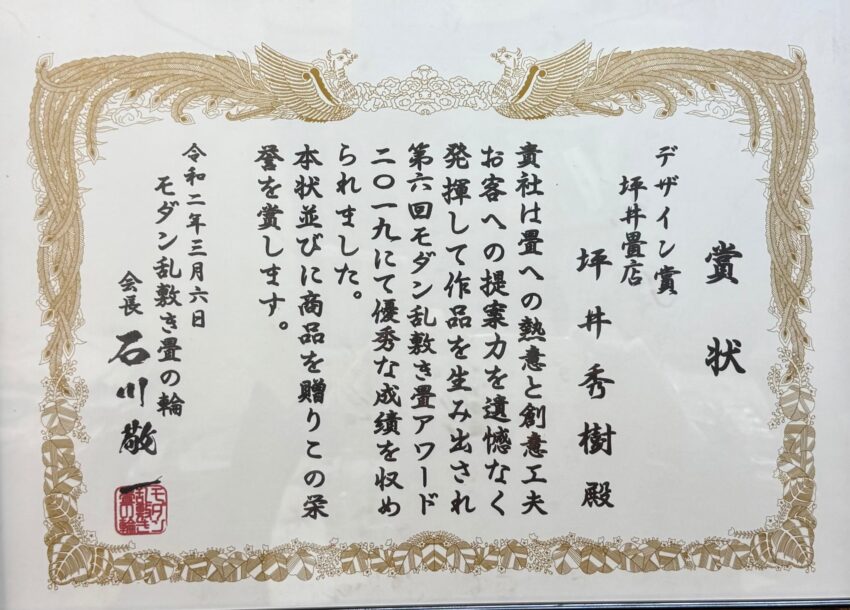 賞状
デザイン賞
坪井畳店
坪井秀樹殿
貴社は畳への熱意と創意工夫
お客への提案力を遺憾なく
発揮して作品を生み出され
第六回モダン乱敷き畳アワード
二〇一九にて優秀な成績を収め
られました。
本状並びに商品を贈りこの栄
誉を賞します。
令和二年三月六日
モダン乱敷き畳の輪
会長 石川敬一
モダン
乱敷き
畳の輪